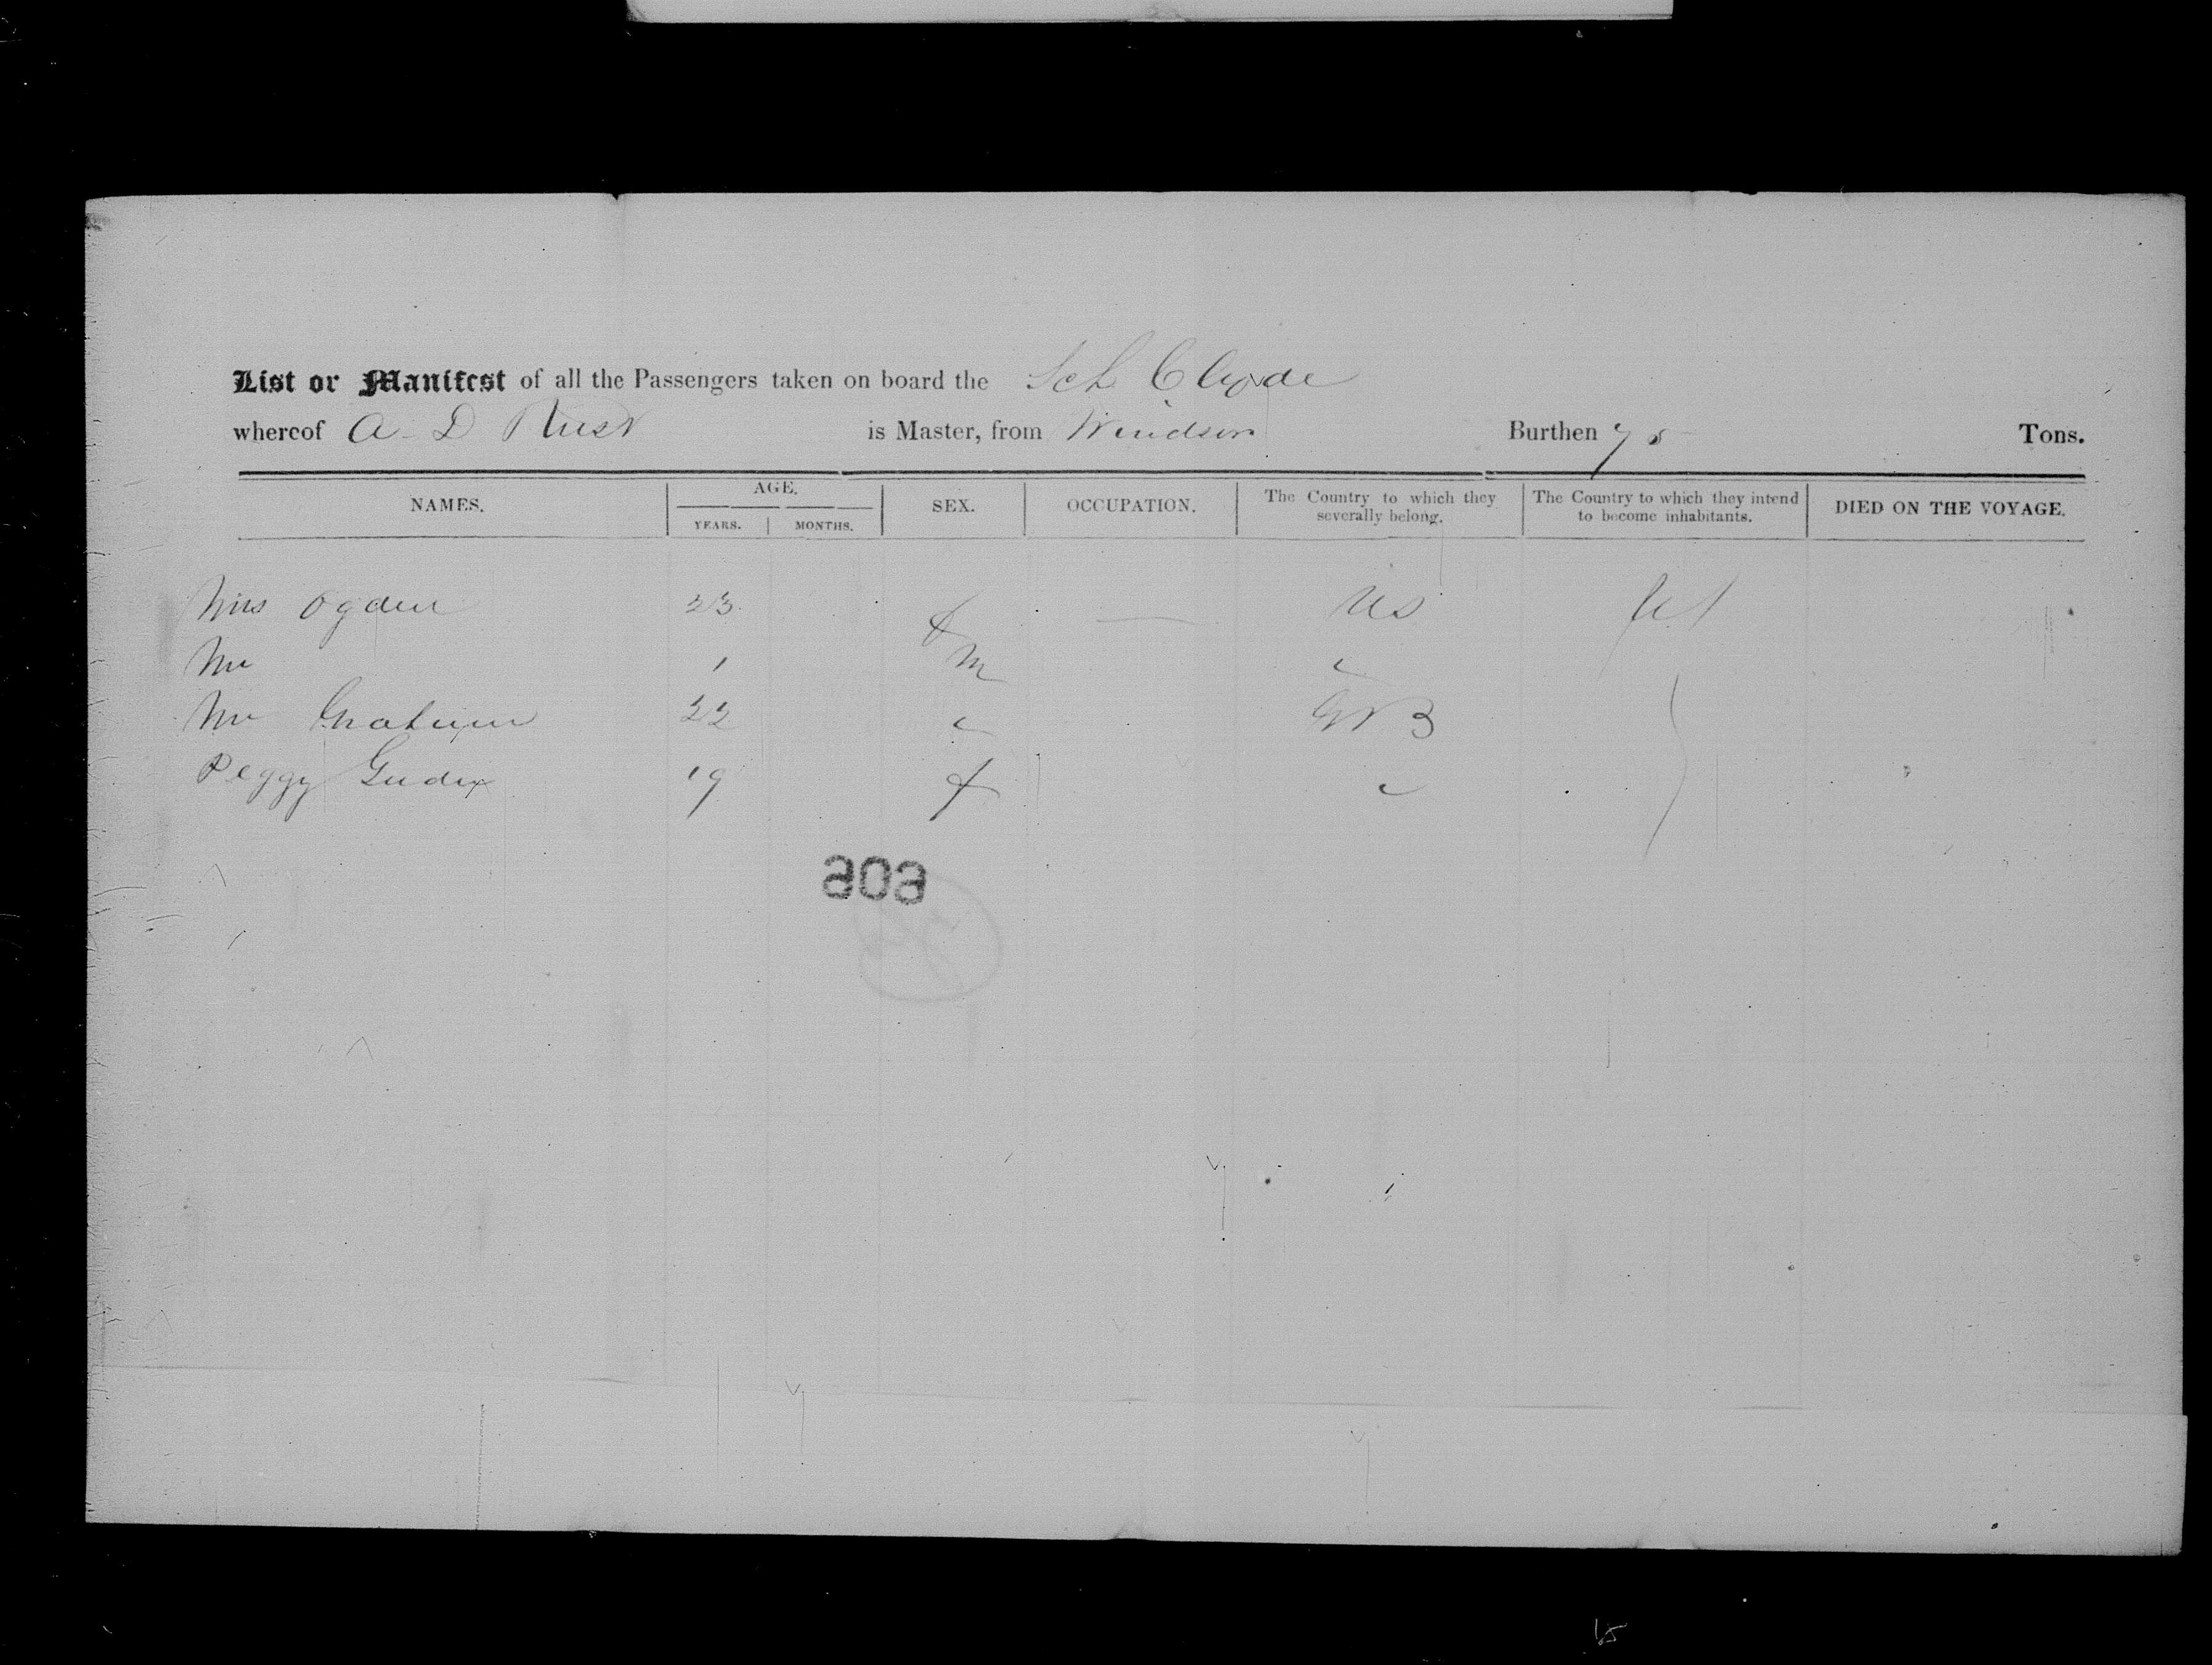 List or Manifest of all the Passengers taken on board the Sch Clyde
whereof A. D Rust is Master, from Windsor Burthen 75 Tons.
NAMES. AGE. YEARS. MONTHS. SEX. OCCUPATION. The Country to which they severally belong. The Country to which they intend to become inhabitants. DIED ON THE VOYAGE.
Mrs Ogden 23 f — US US
Mr 1 m "
Mr Graham 22 " GrB
Peggy 19 f "